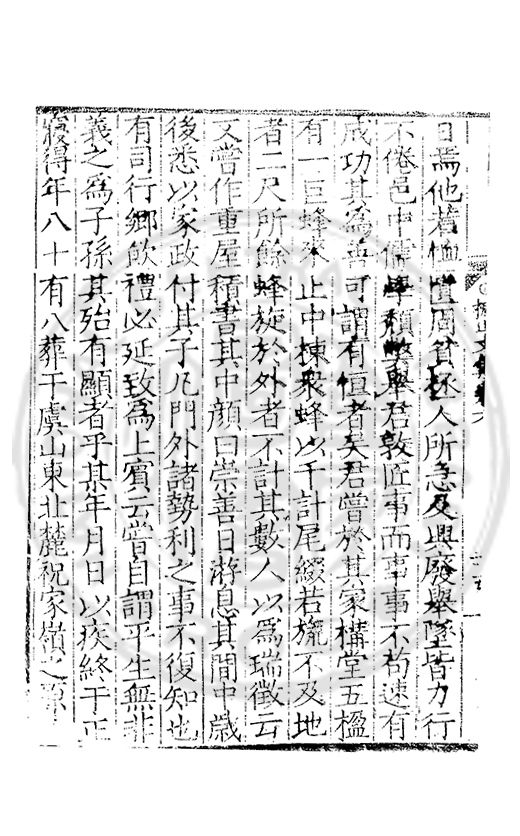 日焉他若恤匱周貧拯人所急及興廢舉墜皆力行
不倦邑中儒學頹弊舉君敦匠事而事事不苟速有
成功其為善可謂有恒者矣君嘗於其家構堂五楹
有一巨蜂來止中棟衆蜂以千計尾綴若旒不及地
者二尺所餘蜂旋於外者不計其數人以為瑞徵云
又嘗作重屋積書其中顔曰崇善日游息其間中歲
後悉以家政付其子凡門外諸勢利之事不復知也
有司行鄉飲禮必延致為上賓云嘗自謂平生無非
義之為子孫其殆有顯者乎某年月日以疾終于正
寢得年八十有八葬于虞山東北麓祝家嶺之原